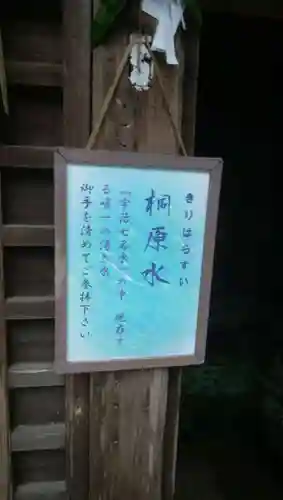 きりはらすい
桐原水
『宇治七名水』の中 現存す
る唯一の湧き水
御手を清めてご参拝下さい